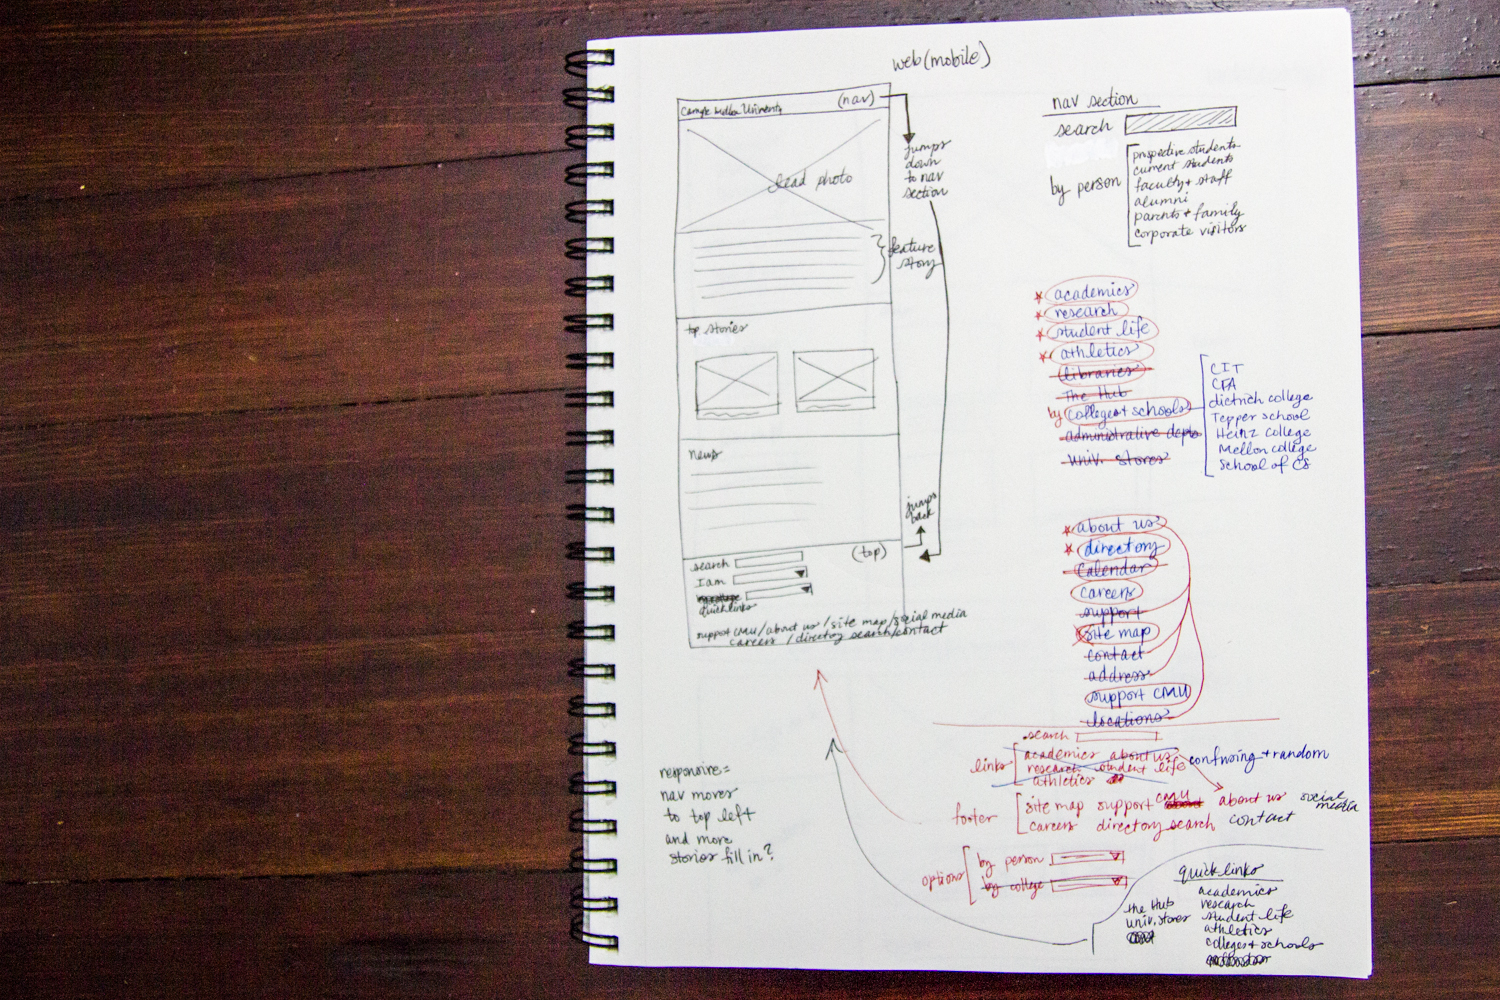 web (mobile)
Carnegie Mellon University (nav)
lead photo
jumps
down
to nav
section
feature
story
top stories
news
jumps
back
(top)
search
I am
quicklinks
support CMU / about us / site map / social media
careers / directory search / contact
responsive =
nav moves
to top left
and more
stories fill in?
nav section
search
by person
prospective students
current students
faculty + staff
alumni
parents + family
corporate visitors
academics
research
student life
athletics
libraries
The Hub
by colleges + schools
administrative depts
univ. stores
CIT
CFA
dietrich college
Tepper school
Heinz college
Mellon college
School of CS
about us
directory
Calendar
careers
support
site map
contact
address
support CMU
locations
search
links
academics about us
research student life
athletics
confusing + random
footer
site map support CMU about us social media
careers directory search contact
options
by person
by college
quicklinks
academics
research
student life
athletics
colleges + schools
the Hub
univ. stores